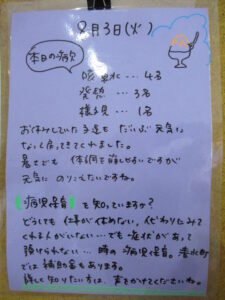 8月3日(火)
本日の病欠
咳・鼻水 … 4名
発熱 … 3名
様子見 … 1名
お休みしていた子達も だいぶ 元気に
なって戻ってきてくれました。
暑さでも 体調を崩しやすいですが
元気に のりこえたいですね。
病児保育 を知っていますか?
どうしても 仕事が休めない、代わりにみて
くれる人がいない…でも症状があって
預けられない… 時の病児保育。清水町
では 補助金もあります。
詳しく知りたい方は、声をかけてくださいね。